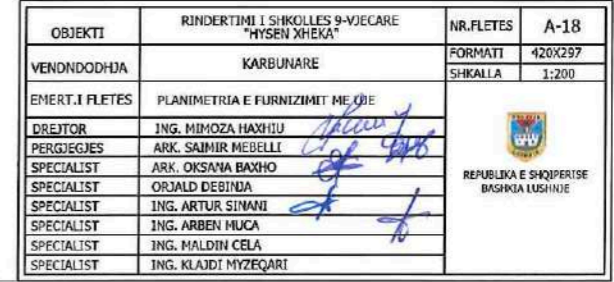 OBJEKTI RINDERTIMI I SHKOLLES 9-VJECARE NR.FLETES A-18
"HYSEN XHEKA"
VENDNDODHJA KARBUNARE FORMATI 420X297
SHKALLA 1:200
EMERT.I FLETES PLANIMETRIA E FURNIZIMIT ME UJE
DREJTOR ING. MIMOZA HAXHIU
PERGJEGJES ARK. SAIMIR MEBELLI
SPECIALIST ARK. OKSANA BAXHO
SPECIALIST ORJALD DEBINJA
SPECIALIST ING. ARTUR SINANI
SPECIALIST ING. ARBEN MUCA
SPECIALIST ING. MALDIN CELA
SPECIALIST ING. KLAJDI MYZEQARI
REPUBLIKA E SHQIPERISE
BASHKIA LUSHNJE